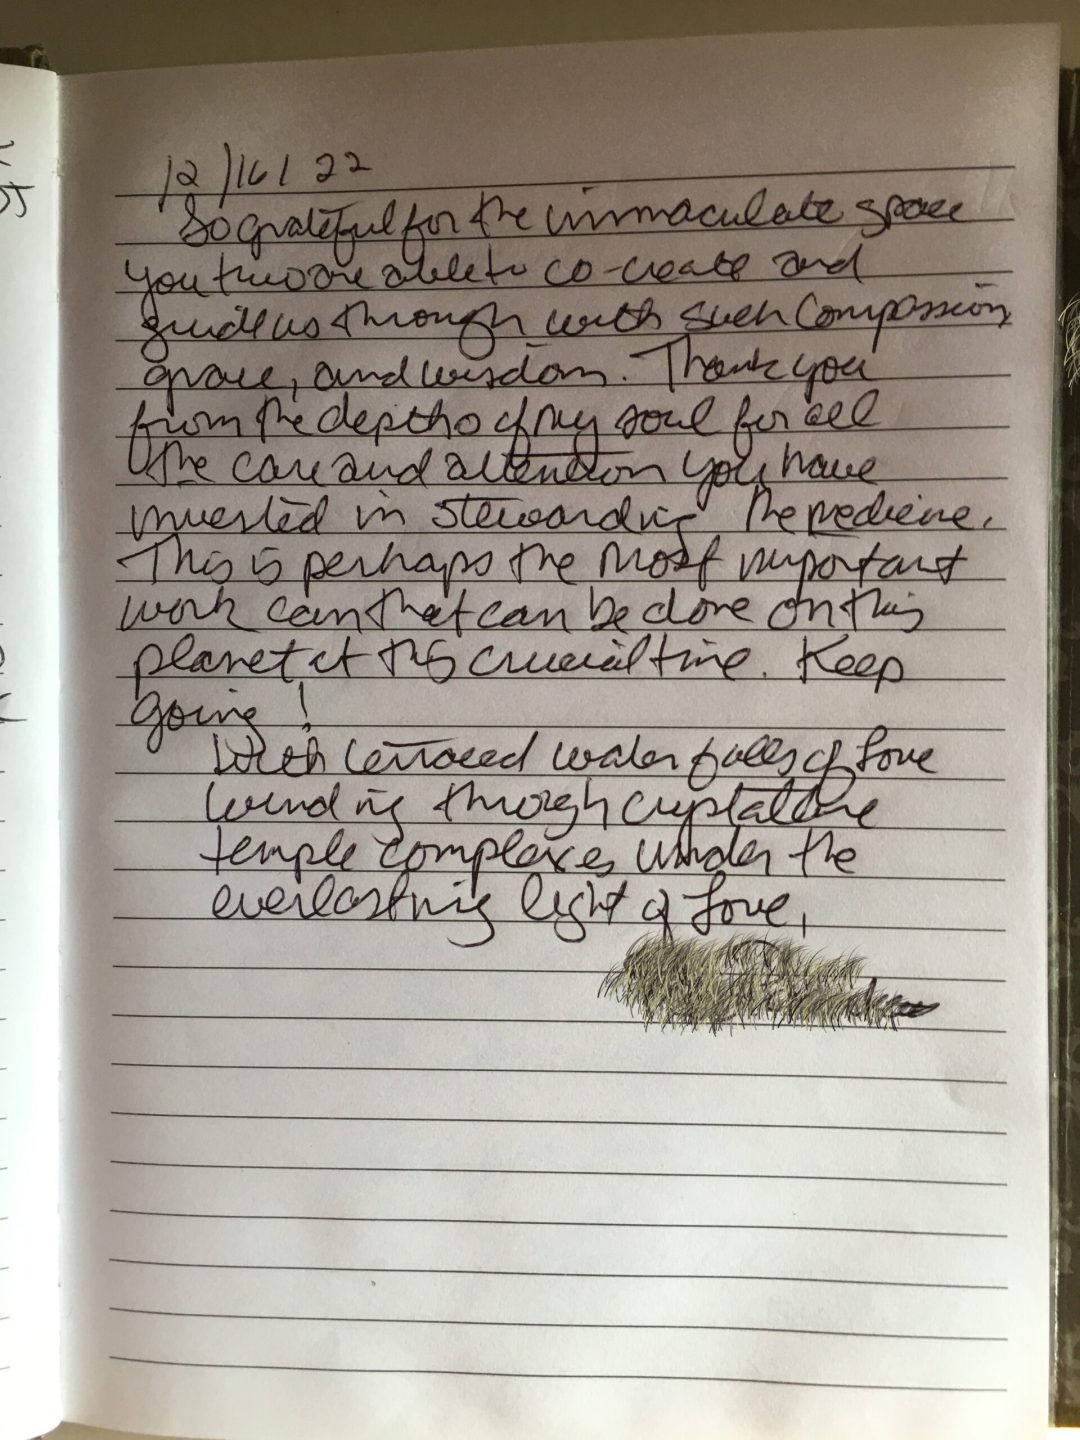 12/16/22
So grateful for the immaculate space
you two are able to co-create and
guide us through with such compassion,
grace, and wisdom. Thank you
from the depths of my soul for all
the care and attention you have
invested in stewarding the medicine.
This is perhaps the most important
work can that can be done on this
planet at this crucial time. Keep
going!
With terraced waterfalls of Love
winding through crystalline
temple complexes under the
everlasting light of Love,